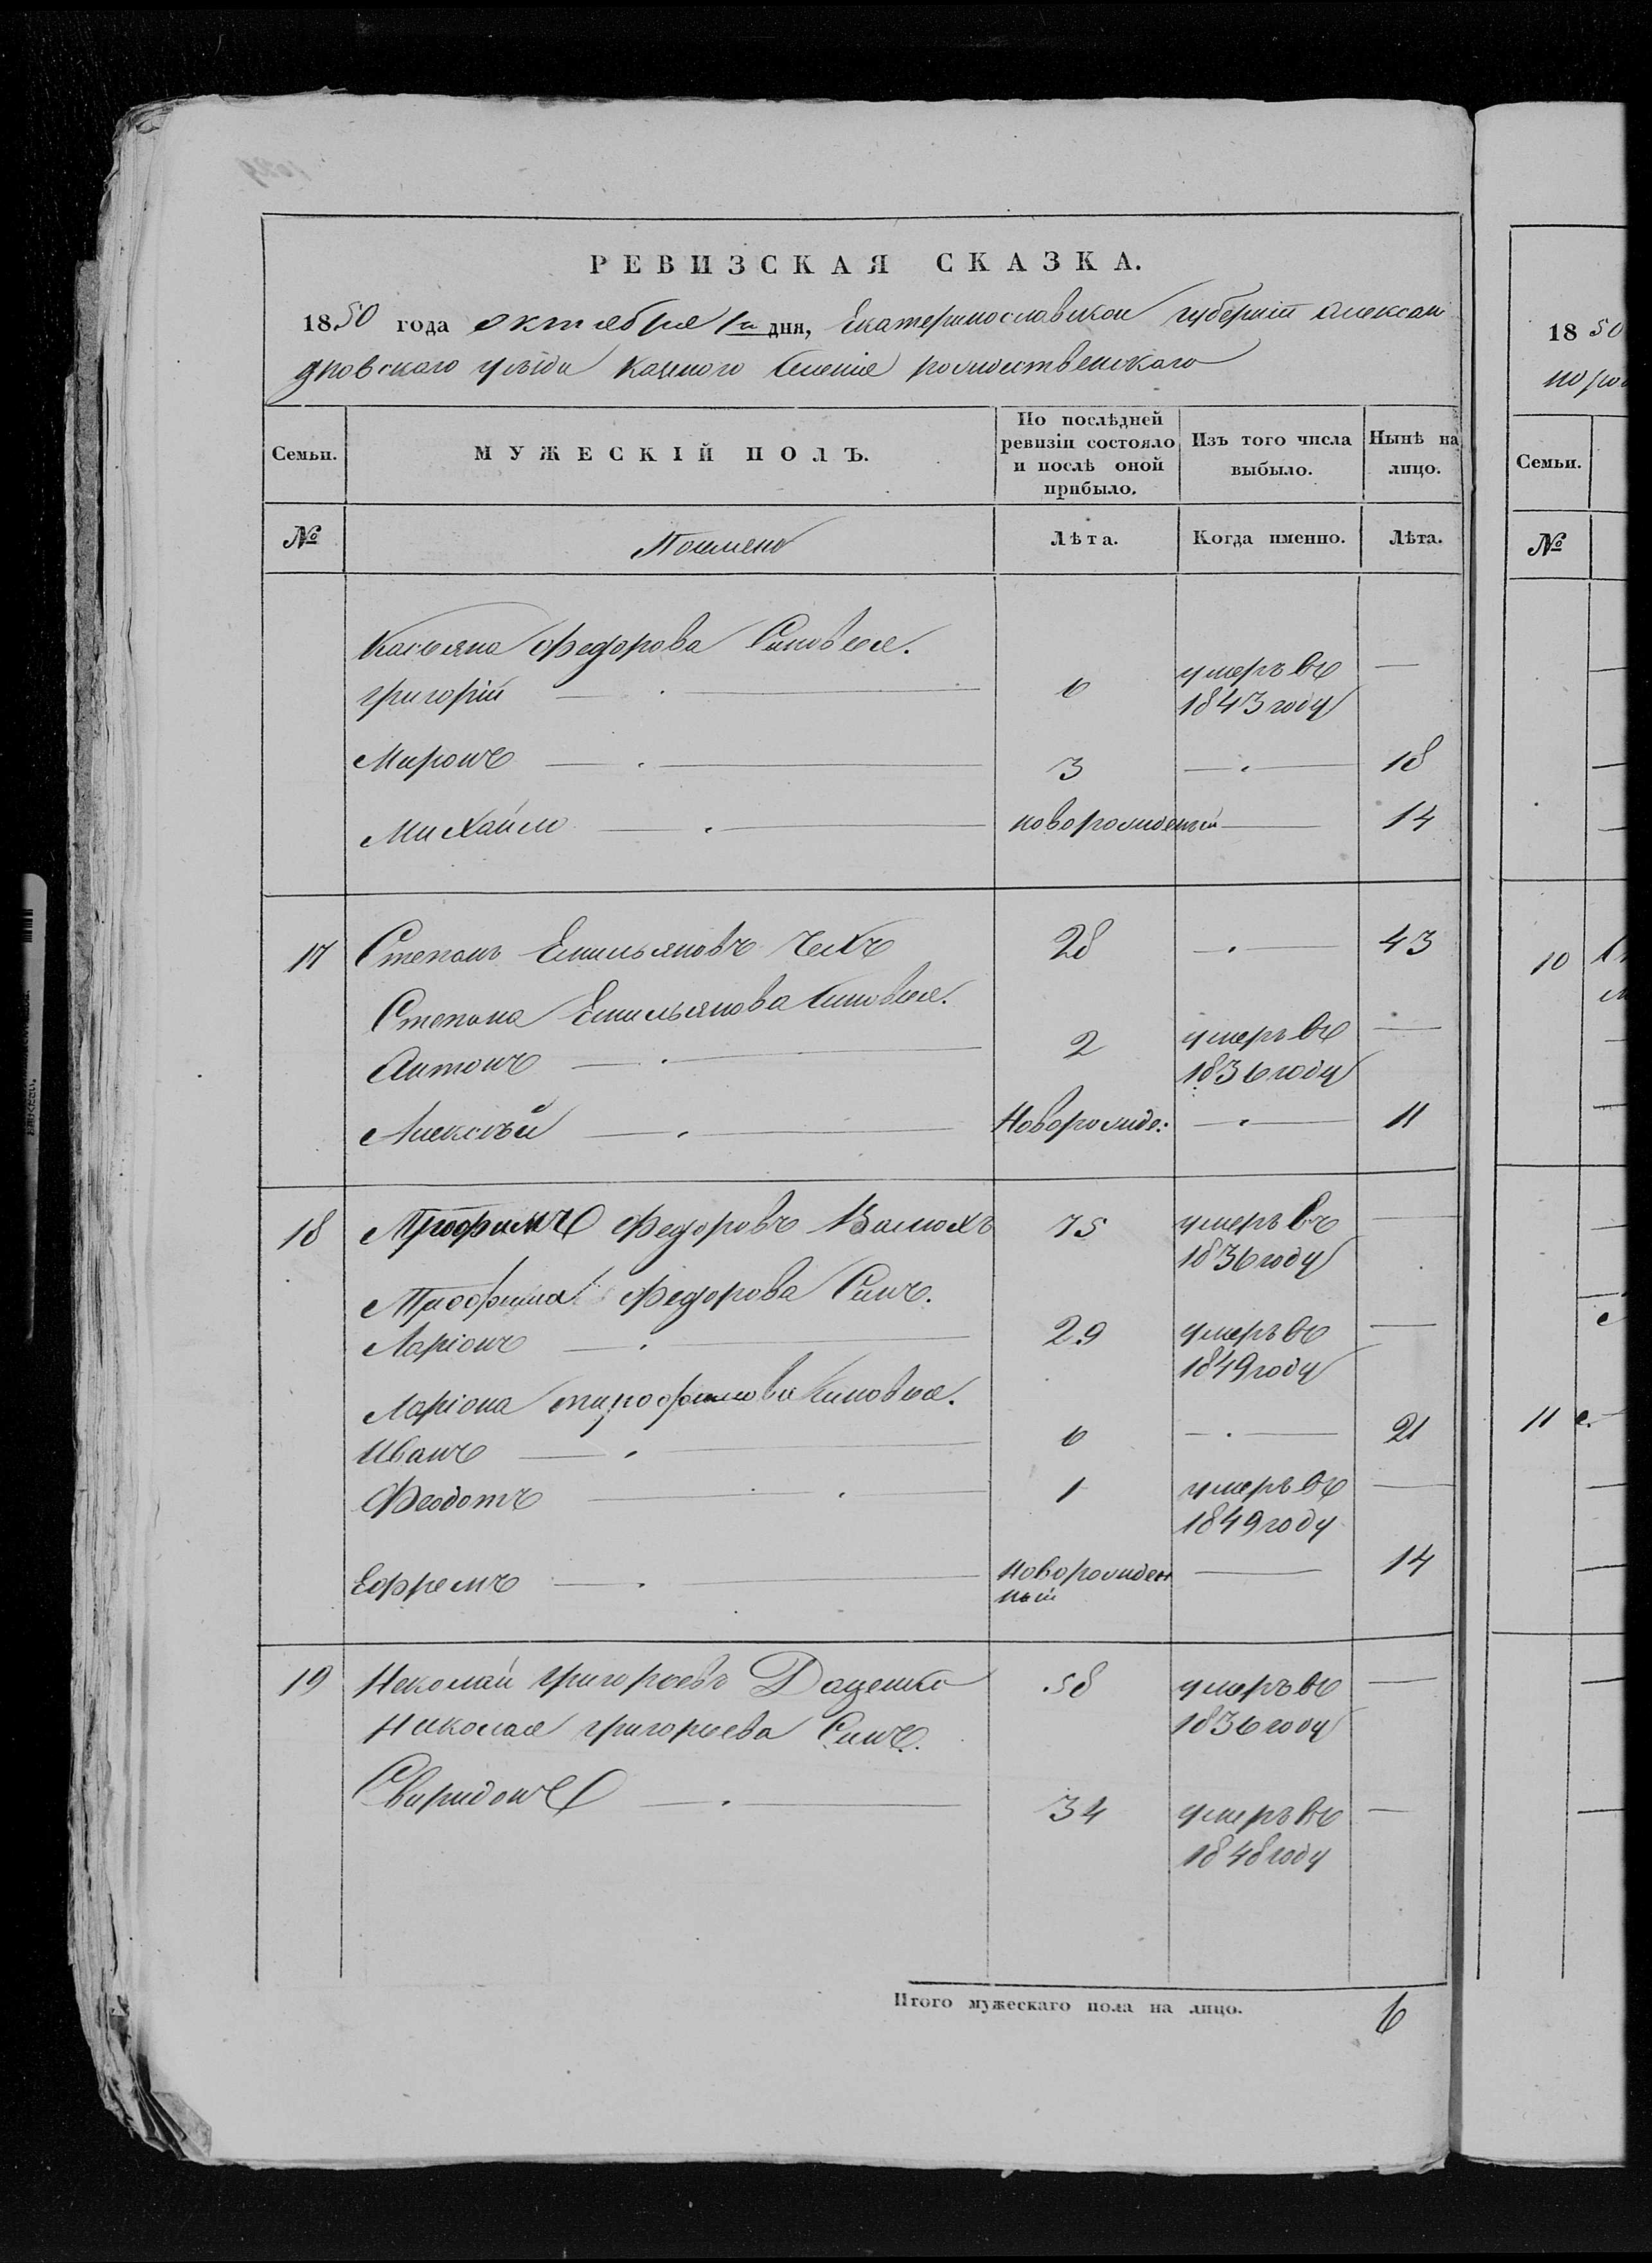 РЕВИЗСКАЯ СКАЗКА.
1850 года октября 1го дня, Екатеринославской губерніи Алексан
дровского уѣзда Казного Селенія рождественскаго
Семьи. МУЖЕСКІЙ ПОЛЪ. По послѣдней ревизіи состояло и послѣ оной прибыло. Изъ того числа выбыло. Нынѣ на лицо.
№ Поимено Лѣта. Когда именно. Лѣта.
Касьяна Федорова Синовья.
григорій 6 умеръ въ 1843 году —
Миронъ 3 — 18
Михайло новорожденый — 14
17 Степанъ Емильяновъ Чехъ 28 — 43
Степана Емильянова Синовья.
Антонъ 2 умеръ въ 1836 году —
Алексѣй Новорожде: — 11
18 Трофимъ Федоровъ 75 умеръ въ 1836 году —
Трофима Федорова Синъ.
Ларіонъ 29 умеръ въ 1849 году —
Ларіона трофимова Синовья.
Иванъ 6 — 21
Феодотъ 1 умеръ въ 1849 году —
Ефремъ Новорожден ный — 14
19 Неколай григорьевъ Даценко 58 умеръ въ 1836 году —
Николая григорьева Синъ.
Свиридонъ 34 умеръ въ 1848 году —
Итого мужескаго пола на лицо. 6
1850
Семьи.
№
10
11